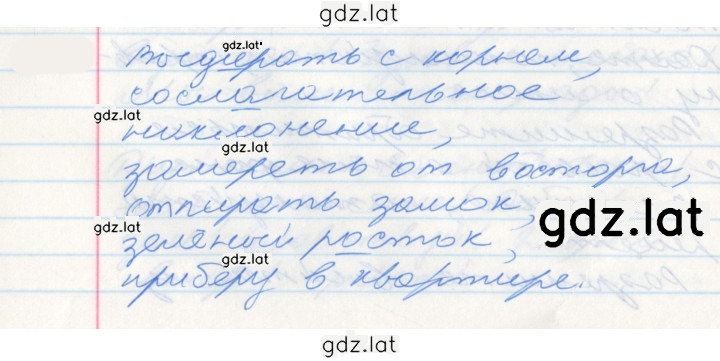 gdz.lat
gdz.lat
Выдирать с корнем,
gdz.lat
сослагательное
gdz.lat
наклонение,
gdz.lat
замереть от восторга,
отпирать замок,
gdz.lat
gdz.lat
зелёный росток,
gdz.lat
приберу в квартире.
gdz.lat